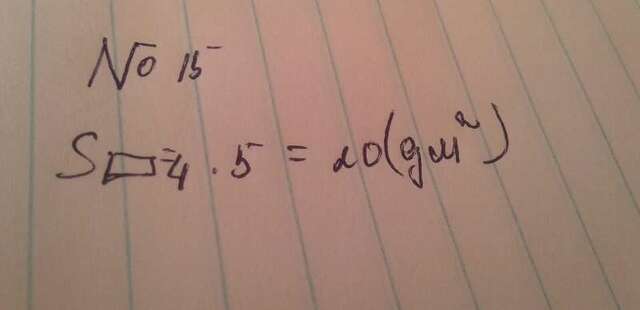 № 15
S▭=4 · 5 = 20(дм²)